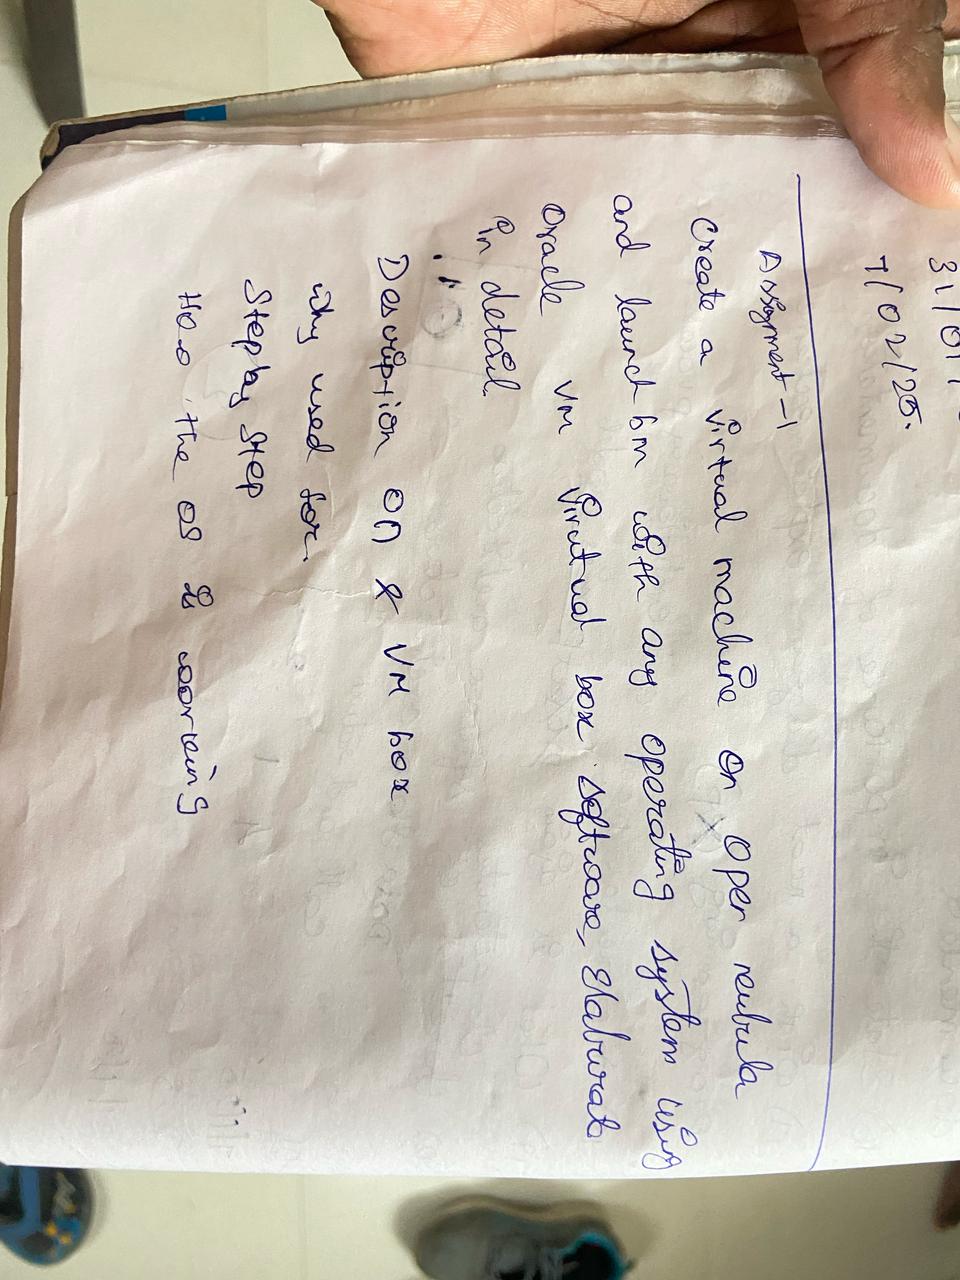 31/01
7/02/25.
Assignment - 1
Create a virtual machine on open neubula
and launch bm with any operating system using
Oracle VM Virutual box software, Elaburate
in detail.
Description on & VM box
why used for.
Step by Step
the OS is working